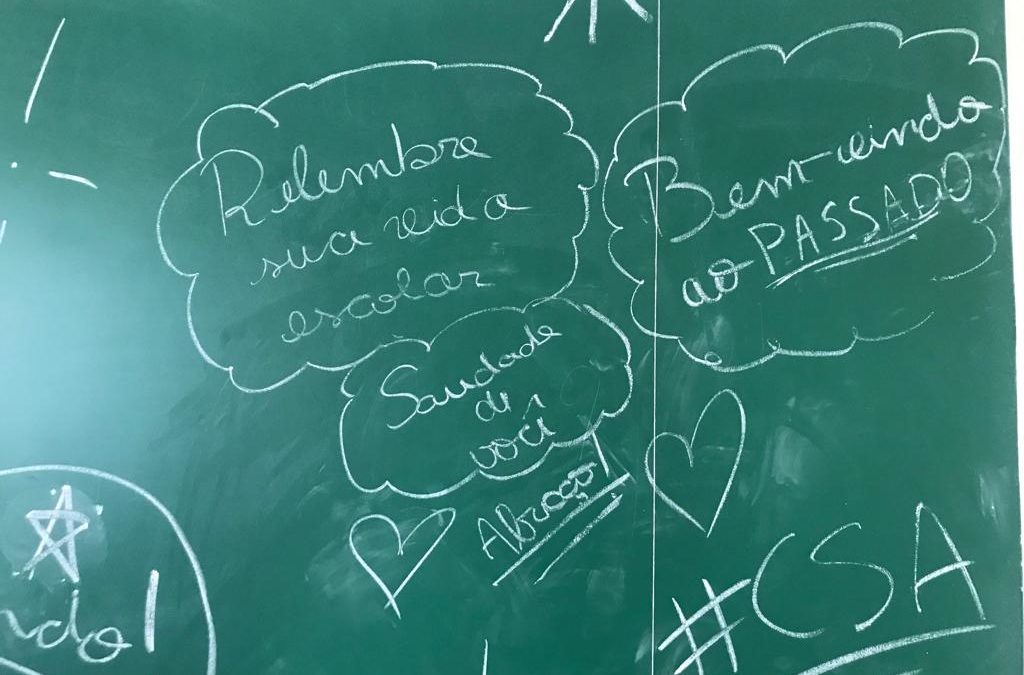 Relembre
sua vida
escolar
Bem-vindo
ao PASSADO
Saudade
de
você
Abraço!
#CSA